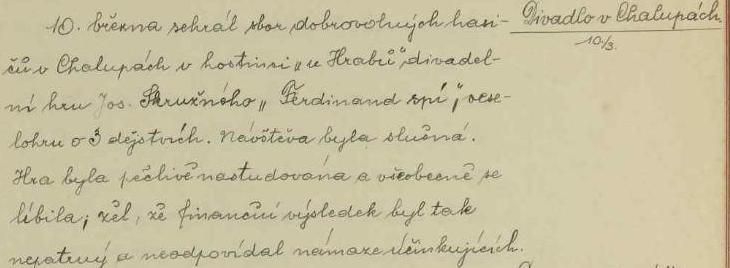 10. března sehrál sbor dobrovolných hasi-
čů v Chalupách v hostinci „u Hrabů“ divadel-
ní hru Jos. Skružného „Ferdinand spí“, vese-
lohru o 3 dějstvích. Návštěva byla slušná.
Hra byla pečlivě nastudována a všeobecně se
líbila; žel, že finanční výsledek byl tak
nepatrný a neodpovídal námaze účinkujících.
Divadlo v Chalupách.
10/3.